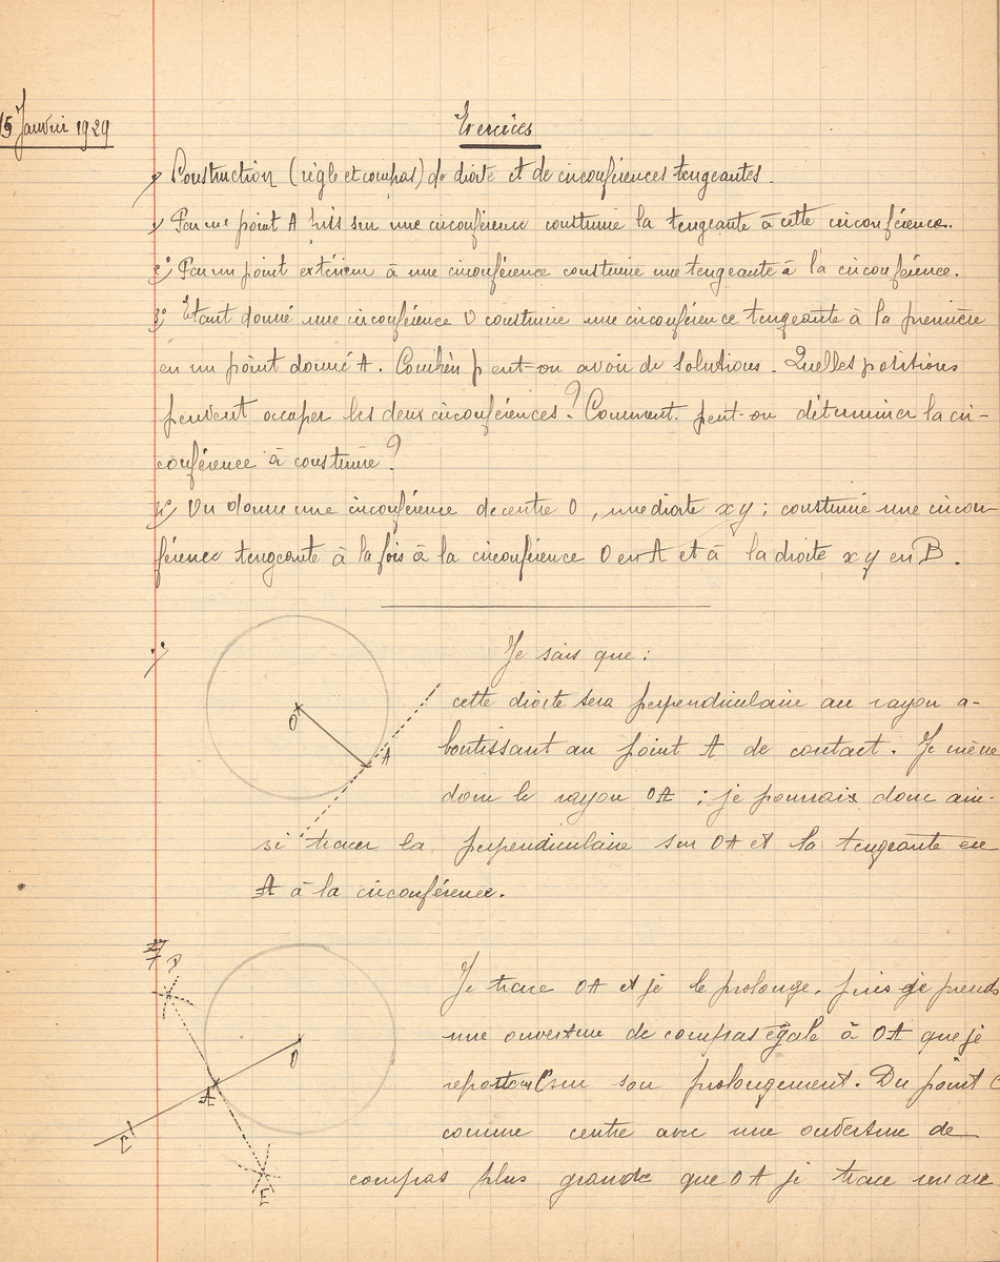 15 Janvier 1929
Exercices
Construction (règle et compas) de droite et de circonférences tengeantes.
1°/ Par un point A pris sur une circonférence construire la tengeante à cette circonférence.
2°/ Par un point extérieur à une circonférence construire une tengeante à la circonférence.
3°/ Etant donné une circonférence O construire une circonférence tengeante à la première
en un point donné A. Combien peut-on avoir de solutions. Quelles positions
peuvent occuper les deux circonférences ? Comment peut-on déterminer la cir-
conférence à construire ?
4°/ On donne une circonférence de centre O, une droite xy ; construire une circon-
férence tengeante à la fois à la circonférence O en A et à la droite xy en B.
1°/
Je sais que :
cette droite sera perpendiculaire au rayon a-
boutissant au point A de contact. Je mène
donc le rayon OA ; je pourrais donc ain-
si tracer la perpendiculaire sur OA et la tengeante en
A à la circonférence.
O
A
Je trace OA et je le prolonge, puis je prends
une ouverture de compas égale à OA que je
son prolongement. Du point C
comme centre avec une ouverture de
compas plus grande que OA je trace un arc
D
O
A
C
E